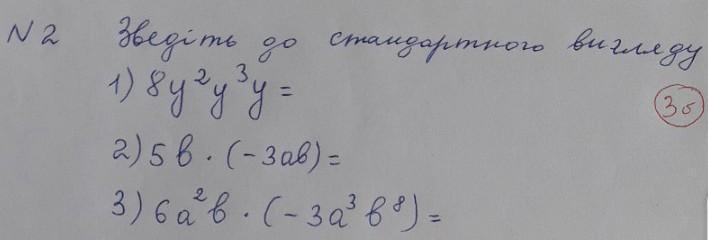 N2 Зведіть до стандартного вигляду
1) 8y²y³y =
3б
2) 5b · (-3ab) =
3) 6a²b · (-3a³b⁸) =